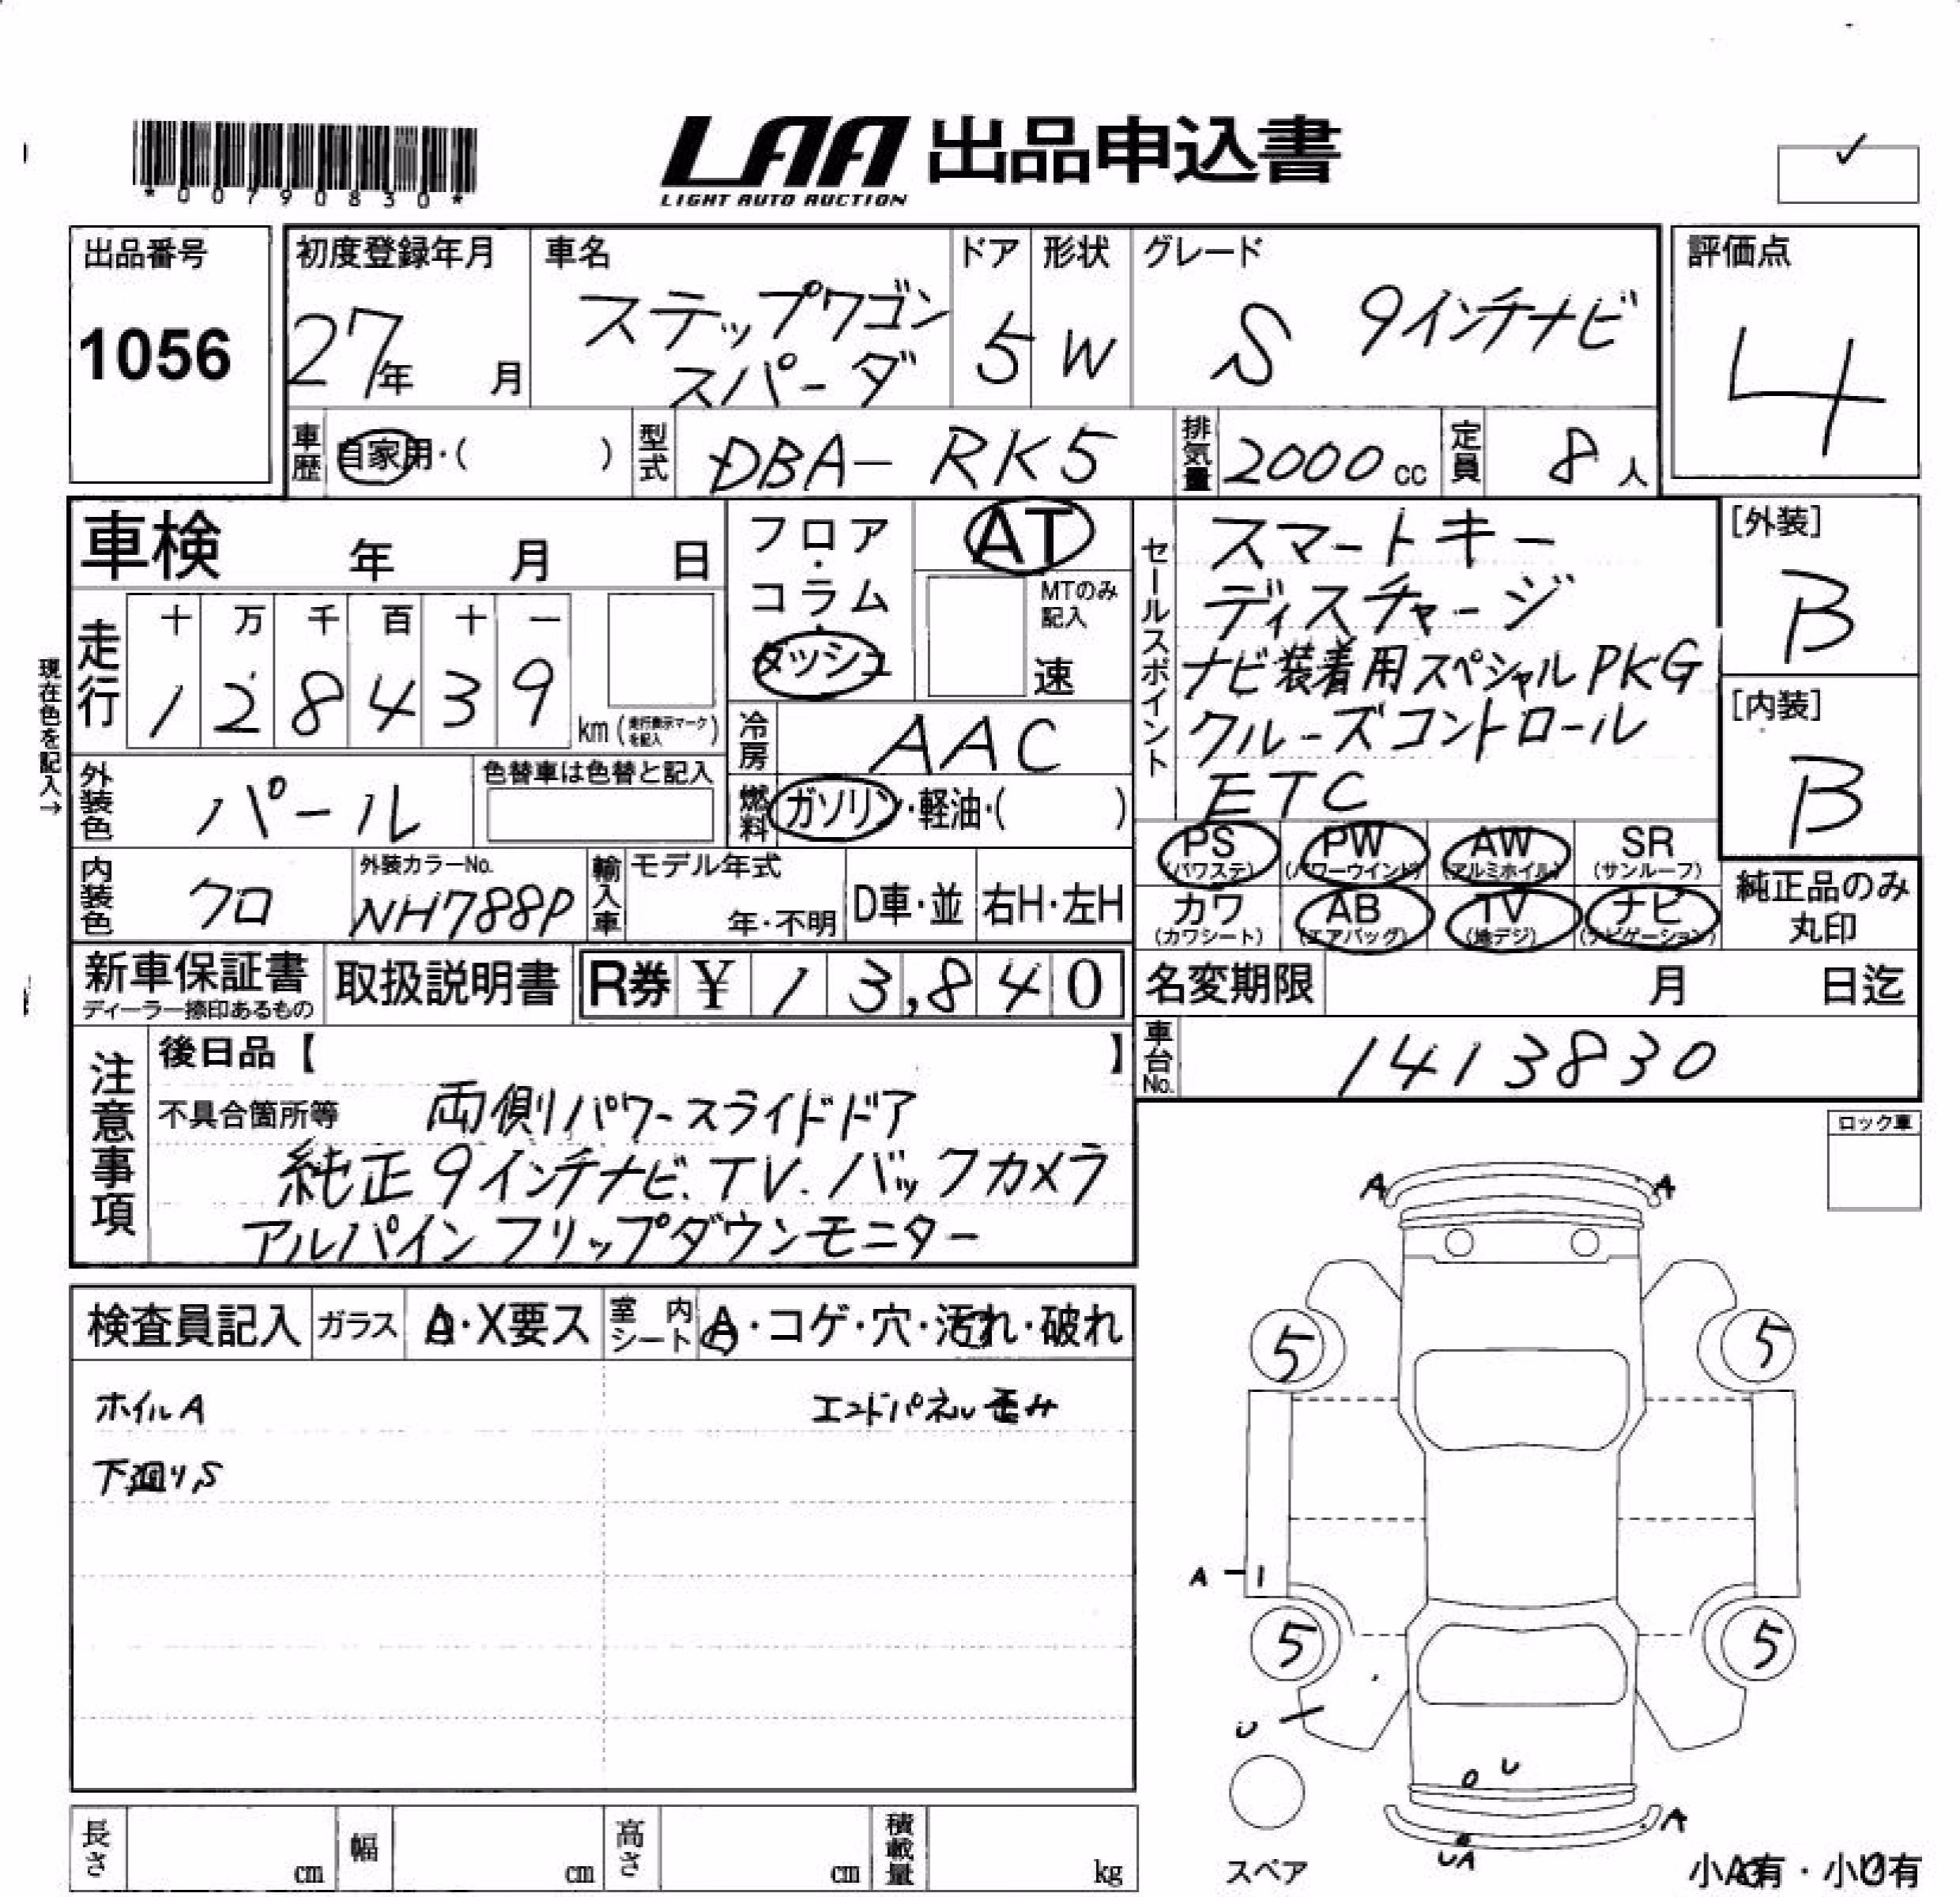 *00790830*
LAA 出品申込書
LIGHT AUTO AUCTION
✓
出品番号
1056
初度登録年月
27年 月
車名
ステップワゴン
スパーダ
ドア
5
形状
W
グレード
S 9インチナビ
評価点
4
車歴
自家用・( )
型式
DBA-RK5
排気量
2000cc
定員
8人
車検 年 月 日
フロア・コラム・ダッシュ
AT
MTのみ記入
速
セールスポイント
スマートキー
ディスチャージ
ナビ装着用スペシャルPKG
クルーズコントロール
ETC
[外装]
B
[内装]
B
現在色を記入→
走行
十 万 千 百 十 一
1 2 8 4 3 9
km(走行表示マークを記入)
冷房
AAC
外装色
パール
色替車は色替と記入
燃料
ガソリン・軽油・( )
PS (パワステ)
PW (パワーウインド)
AW (アルミホイル)
SR (サンルーフ)
カワ (カワシート)
AB (エアバッグ)
TV (地デジ)
ナビ (ナビゲーション)
純正品のみ
丸印
内装色
クロ
外装カラーNo.
NH788P
輸入車
モデル年式
年・不明
D車・並
右H・左H
新車保証書
ディーラー捺印あるもの
取扱説明書
R券 ¥ 13,840
名変期限 月 日迄
車台No.
1413830
注意事項
後日品【 】
不具合箇所等
両側パワースライドドア
純正9インチナビ.TV.バックカメラ
アルパインフリップダウンモニター
ロック車
検査員記入
ガラス
A・X要ス
室内シート
A・コゲ・穴・汚れ・破れ
ホイルA
エンドパネル歪み
下廻りS
A A
5 5
A-1
5 5
U
U
A
UA
スペア
小A有・小U有
長さ cm
幅 cm
高さ cm
積載量 kg